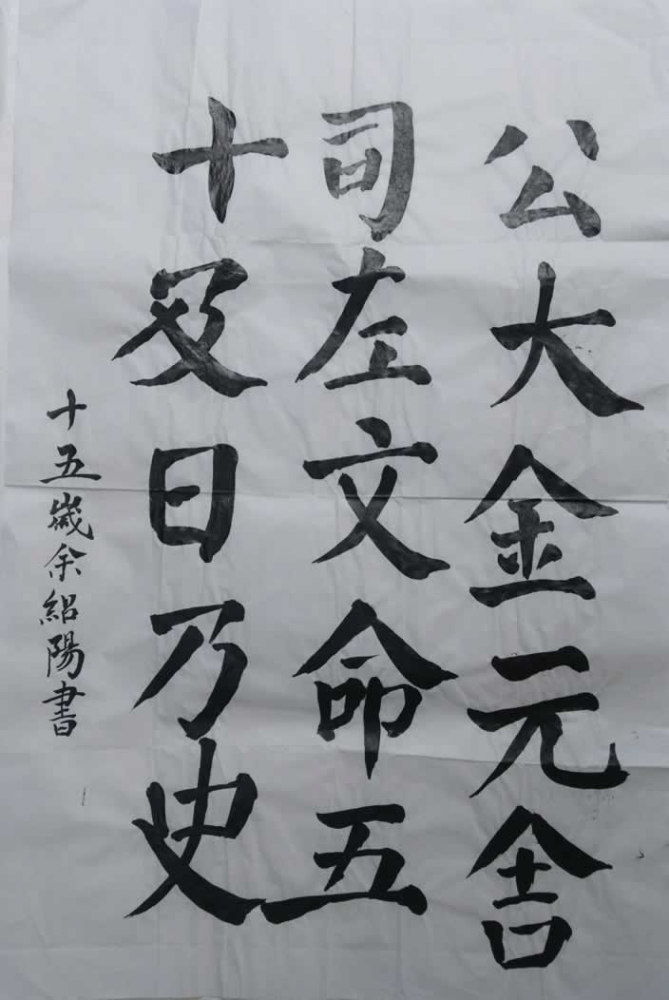 公大金元舍
司左文命五
十及日乃史
十五歲余紹陽書